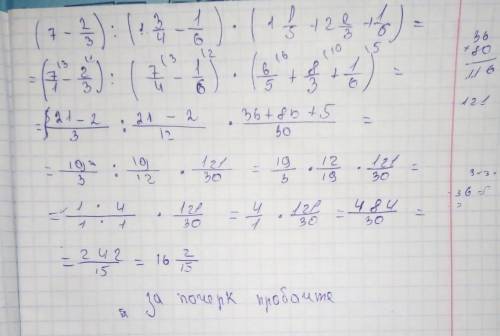 (7 - 2/3) : (1 3/4 - 1/6) · (1 1/5 + 2 2/3 + 1/6) =
= (7/1 - 2/3) : (7/4 - 1/6) · (6/5 + 8/3 + 1/6) =
= (21-2)/3 : (21-2)/12 · (36+80+5)/30 =
= 19/3 : 19/12 · 121/30 = 19/3 · 12/19 · 121/30 =
= (1 · 4)/(1 · 1) · 121/30 = 4/1 · 121/30 = 484/30 =
= 242/15 = 16 2/15
за почерк
36
+80
116
121